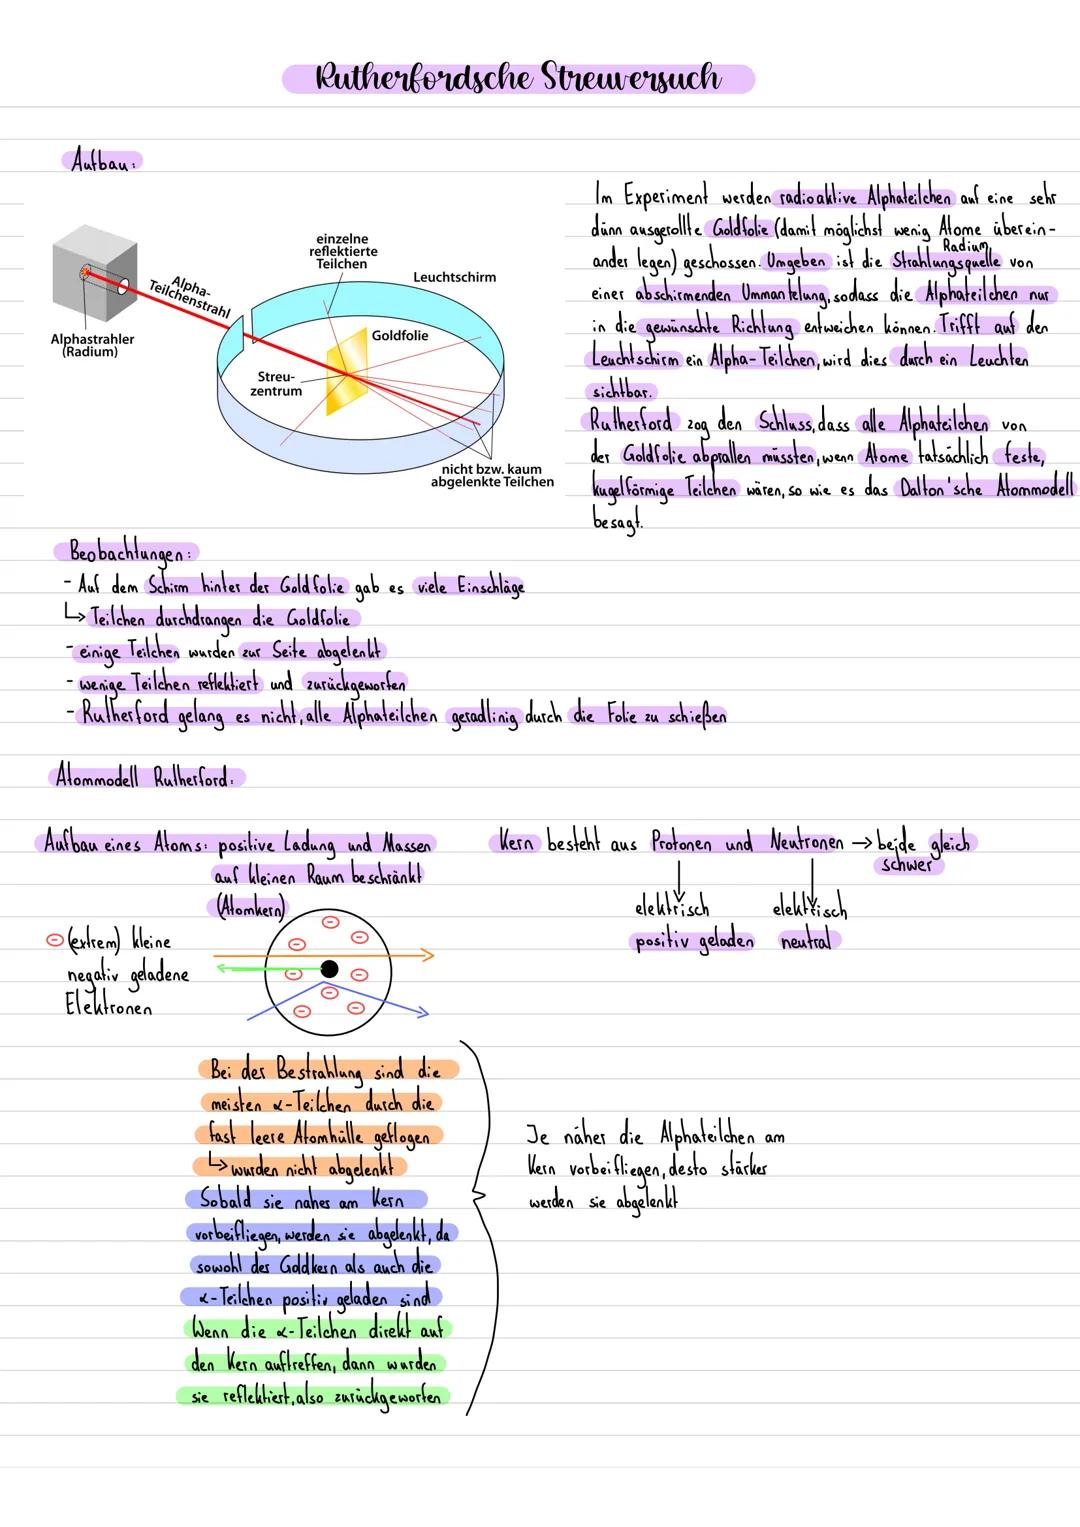 Rutherfordsche Streuversuch
Aufbau:
einzelne
reflektierte
Teilchen
Leuchtschirm
Alpha-
Teilchenstrahl
Alphastrahler
(Radium)
Goldfolie
Streu-
zentrum
nicht bzw. kaum
abgelenkte Teilchen
Im Experiment werden radioaktive Alphateilchen auf eine sehr
dünn ausgerollte Goldfolie (damit möglichst wenig Atome überein-
Radium
ander legen) geschossen. Umgeben ist die Strahlungsquelle von
einer abschirmenden Ummantelung, sodass die Alphateilchen nur
in die gewünschte Richtung entweichen können. Trifft auf den
Leuchtschirm ein Alpha-Teilchen, wird dies durch ein Leuchten
sichtbar.
Rutherford zog den Schluss, dass alle Alphateilchen von
der Goldfolie abprallen müssten, wenn Atome tatsächlich feste,
kugelförmige Teilchen wären, so wie es das Dalton'sche Atommodell
besagt.
Beobachtungen:
- Auf dem Schirm hinter der Goldfolie gab es viele Einschläge
↳ Teilchen durchdrangen die Goldfolie
- einige Teilchen wurden zur Seite abgelenkt
- wenige Teilchen reflektiert und zurückgeworfen
- Rutherford gelang es nicht, alle Alphateilchen geradlinig durch die Folie zu schießen
Atommodell Rutherford:
Aufbau eines Atoms: positive Ladung und Massen
auf kleinen Raum beschränkt
(Atomkern)
⊖ (extrem) kleine
negativ geladene
Elektronen
Kern besteht aus Protonen und Neutronen → beide gleich
schwer
elektrisch elektrisch
positiv geladen neutral
Bei der Bestrahlung sind die
meisten α-Teilchen durch die
fast leere Atomhülle geflogen
↳ wurden nicht abgelenkt
Sobald sie naher am Kern
vorbeifliegen, werden sie abgelenkt, da
sowohl der Goldkern als auch die
α-Teilchen positiv geladen sind
Wenn die α-Teilchen direkt auf
den Kern auftreffen, dann wurden
sie reflektiert, also zurückgeworfen
Je näher die Alphateilchen am
Kern vorbeifliegen, desto stärker
werden sie abgelenkt